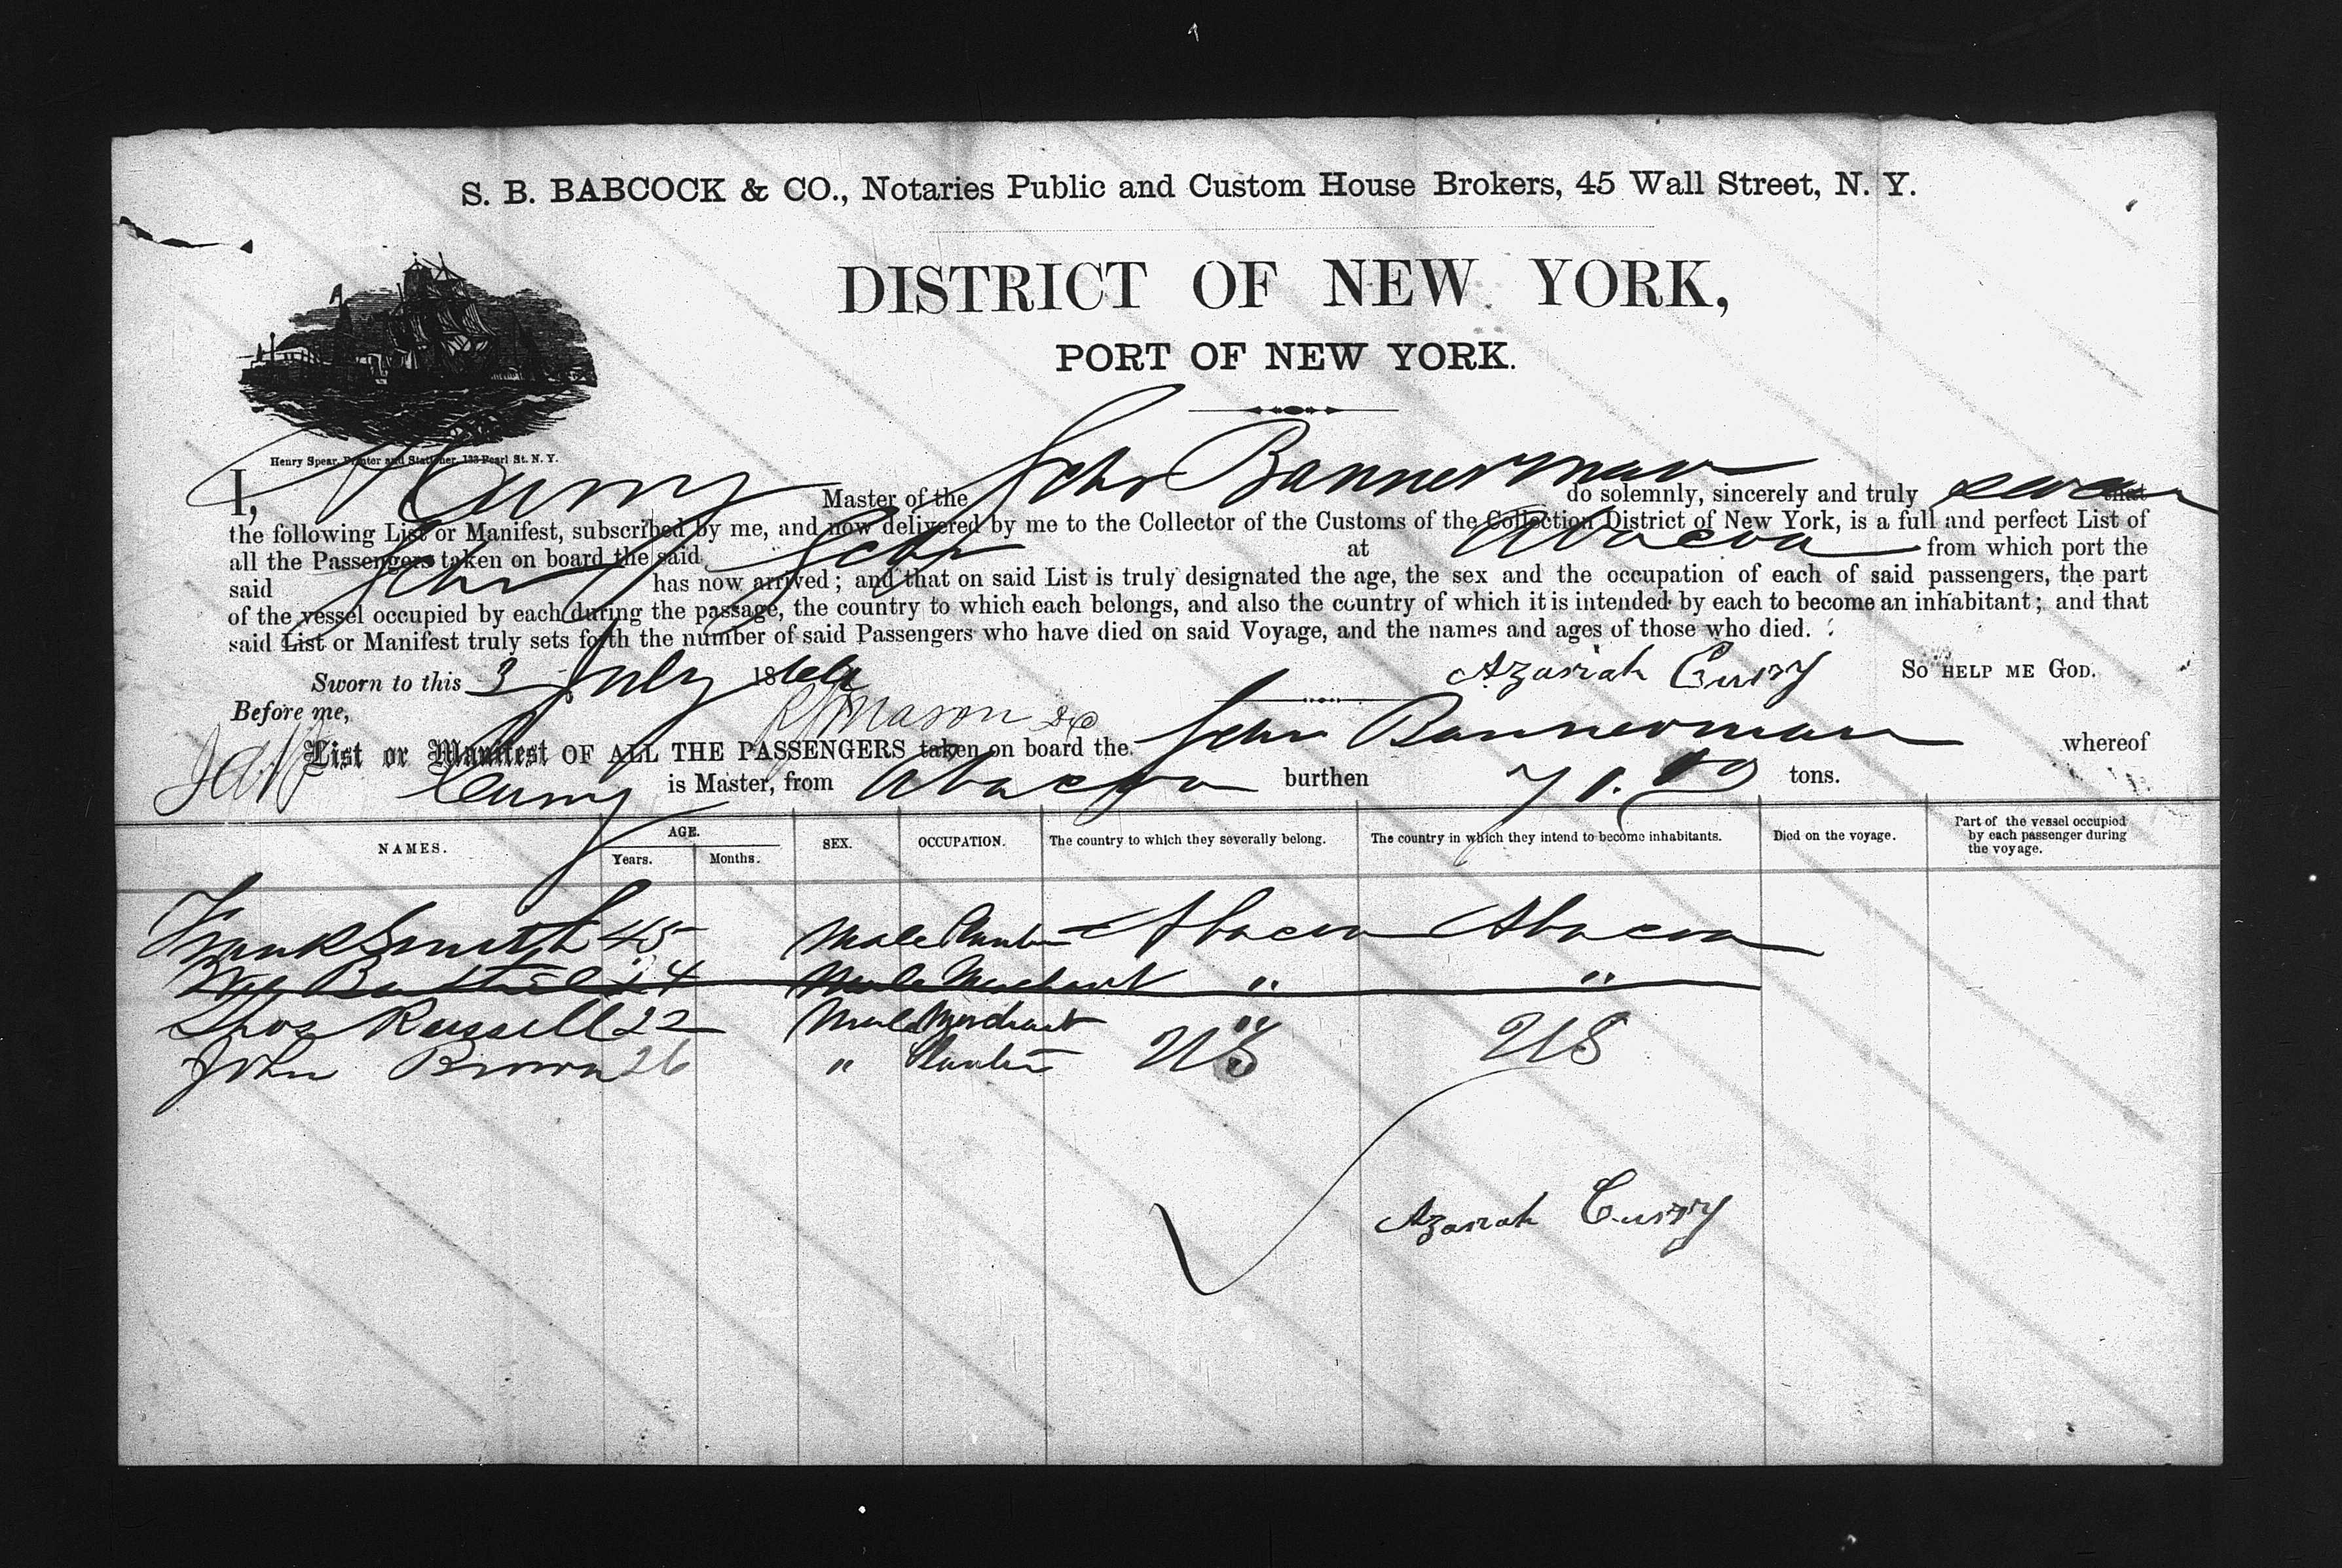 S. B. BABCOCK & CO., Notaries Public and Custom House Brokers, 45 Wall Street, N. Y.
DISTRICT OF NEW YORK,
PORT OF NEW YORK.
Henry Spear, Printer and Stationer, 133 Pearl St. N. Y.
I, A Curry Master of the Schr Bannerman do solemnly, sincerely and truly swear that
the following List or Manifest, subscribed by me, and now delivered by me to the Collector of the Customs of the Collection District of New York, is a full and perfect List of
all the Passengers taken on board the said Schr at Abacoa from which port the
said Schr has now arrived; and that on said List is truly designated the age, the sex and the occupation of each of said passengers, the part
of the vessel occupied by each during the passage, the country to which each belongs, and also the country of which it is intended by each to become an inhabitant; and that
said List or Manifest truly sets forth the number of said Passengers who have died on said Voyage, and the names and ages of those who died.
Sworn to this 3 July 18 Azariah Curry SO HELP ME GOD.
Before me, Mason
List or Manifest OF ALL THE PASSENGERS taken on board the Schr Bannerman whereof
Curry is Master, from Abacoa burthen 71. tons.
NAMES. AGE. Years. Months. SEX. OCCUPATION. The country to which they severally belong. The country in which they intend to become inhabitants. Died on the voyage. Part of the vessel occupied by each passenger during the voyage.
Frank Smith 45 Male Planter Abacoa Abacoa
Male Merchant " "
Thos Russell 22 Male Merchant "
John Brown 26 " Planter US US
Azariah Curry